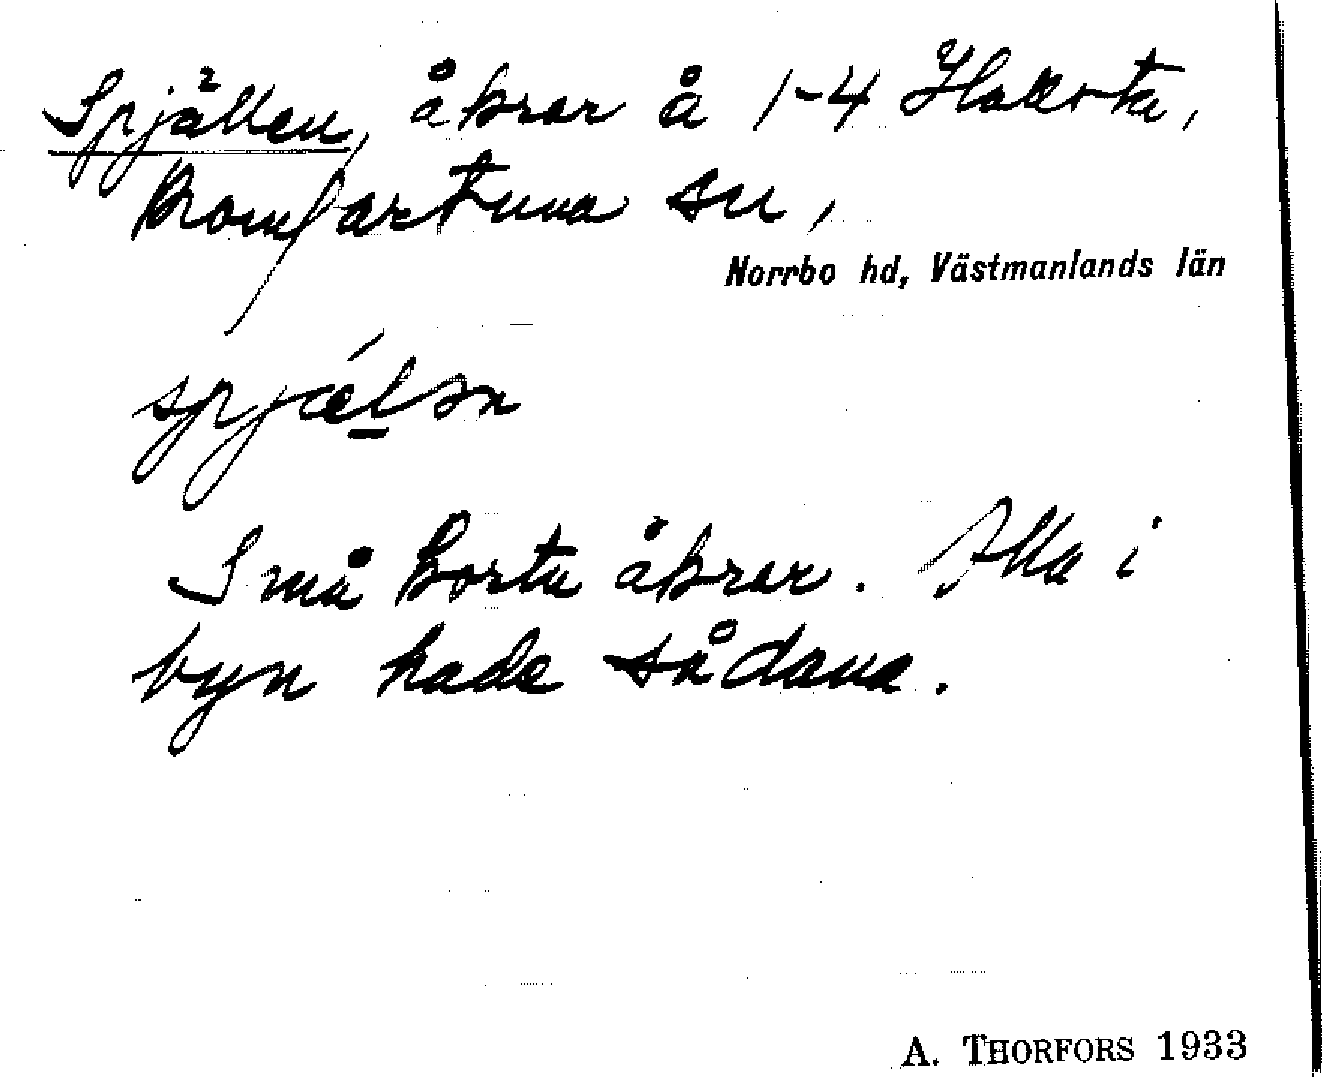 Spjällen, åkrar å 1-4 Hakvsta,
Romfartuna sn,
Norrbo hd, Västmanlands län
spjǽlsn
Små korta åkrar. Alla i
byn hade sådana.
A. THORFORS 1933